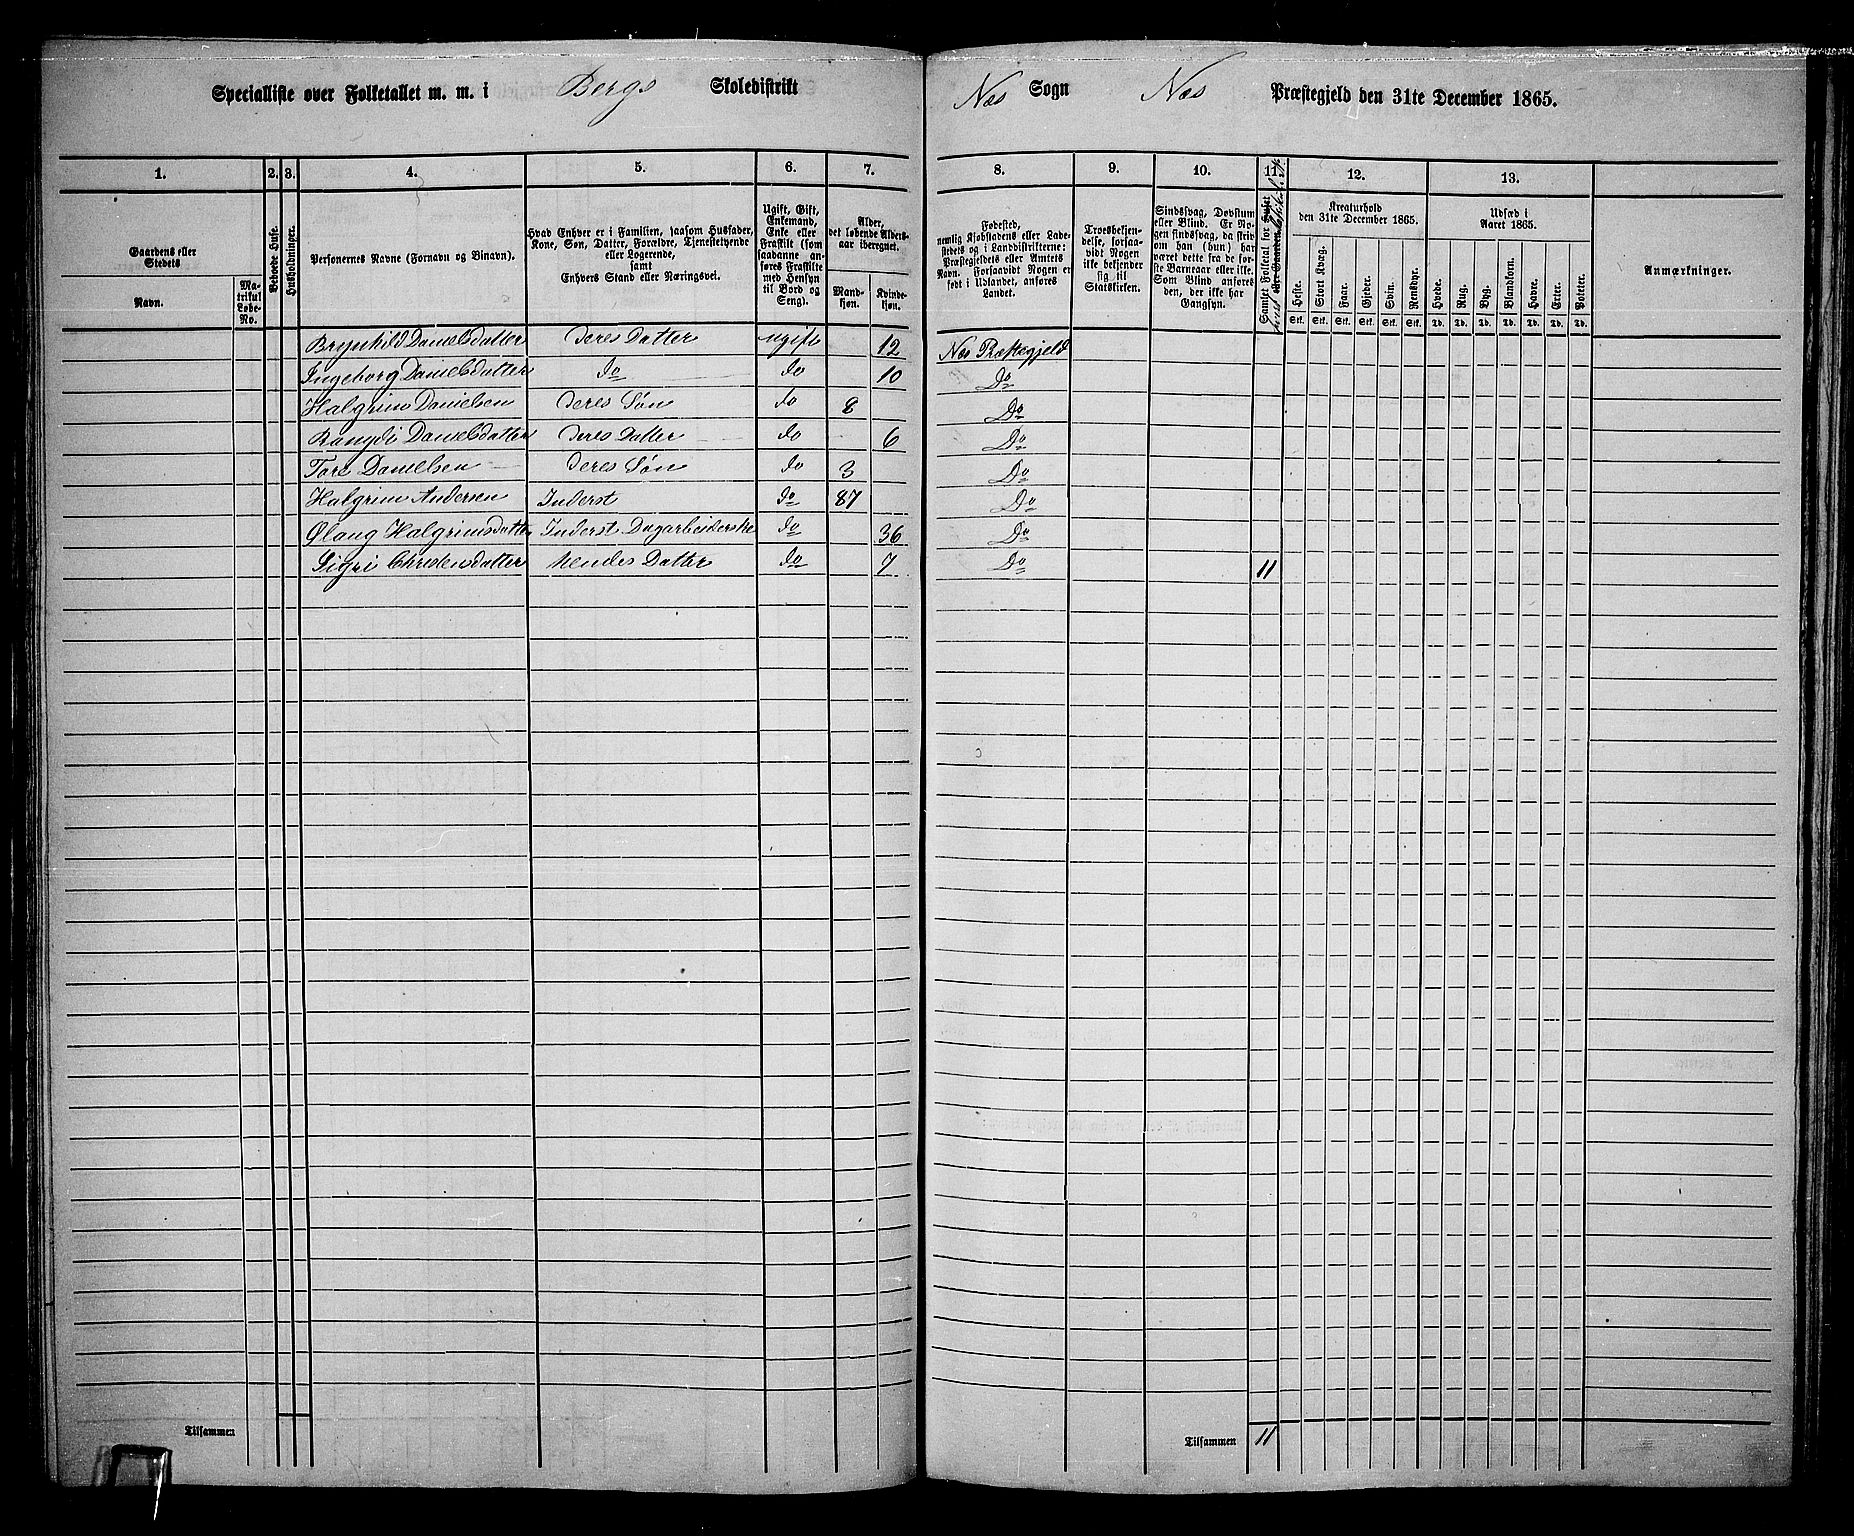 Specialliste over Folketallet m. m. i Bergs Skoledistrikt Næs Sogn Næs Præstegjeld den 31te December 1865.
1. 2. 3. 4. 5. 6. 7. 8. 9. 10. 11. 12. 13.
Gaardens eller Stedets
Navn.
Matrikul Løbe-No.
Beboede Huse.
Husholdninger.
Personernes Navne (Fornavn og Binavn).
Hvad Enhver er i Familien, saasom Husfader, Kone, Søn, Datter, Forældre, Tjenestetyende eller Logerende, samt Enhvers Stand eller Næringsvei.
Ugift, Gift, Enkemand, Enke eller Fraskilt (som saadanne anføres Fraskilte med Hensyn til Bord og Seng).
Alder, det løbende Aldersaar iberegnet.
Mandkjøn.
Kvindekjøn.
Fødested, nemlig Kjøbstadens eller Ladestedets og i Landdistrikterne: Præstegjeldets eller Amtets Navn. Forsaavidt Nogen er født i Udlandet, anføres Landet.
Troesbekjendelse, forsaavidt Nogen ikke bekjender sig til Statskirken.
Sindssvag, Døvstum eller Blind. Er Nogen sindssvag, da skrives om han (hun) har været dette fra de første Barneaar eller ikke. Som Blind anføres den, der ikke har Gangsyn.
Samlet Folketal for
Kreaturhold den 31te December 1865.
Heste. Stort Kvæg. Faar. Gjeder. Svin. Rensdyr.
Stk. Stk. Stk. Stk. Stk. Stk.
Udsæd i Aaret 1865.
Hvede. Rug. Byg. Blandkorn. Havre. Erter. Poteter.
Td. Td. Td. Td. Td. Td. Td.
Anmærkninger.
Brynhild Danielsdatter deres Datter ugift 12 Næs Præstegjeld
Ingeborg Danielsdatter do do 10 Do
Halgrim Danielsen deres Søn do 8 Do
Rangdi Danielsdatter deres Datter do 6 Do
Tore Danielsen deres Søn do 3 Do
Halgrim Andersen Inderst do 87 Do
Øloug Halgrimsdatter Inderst Dagarbeiderske do 36 Do
Sigri Christensdatter hendes Datter do 7 Do 11
Tilsammen Tilsammen 11